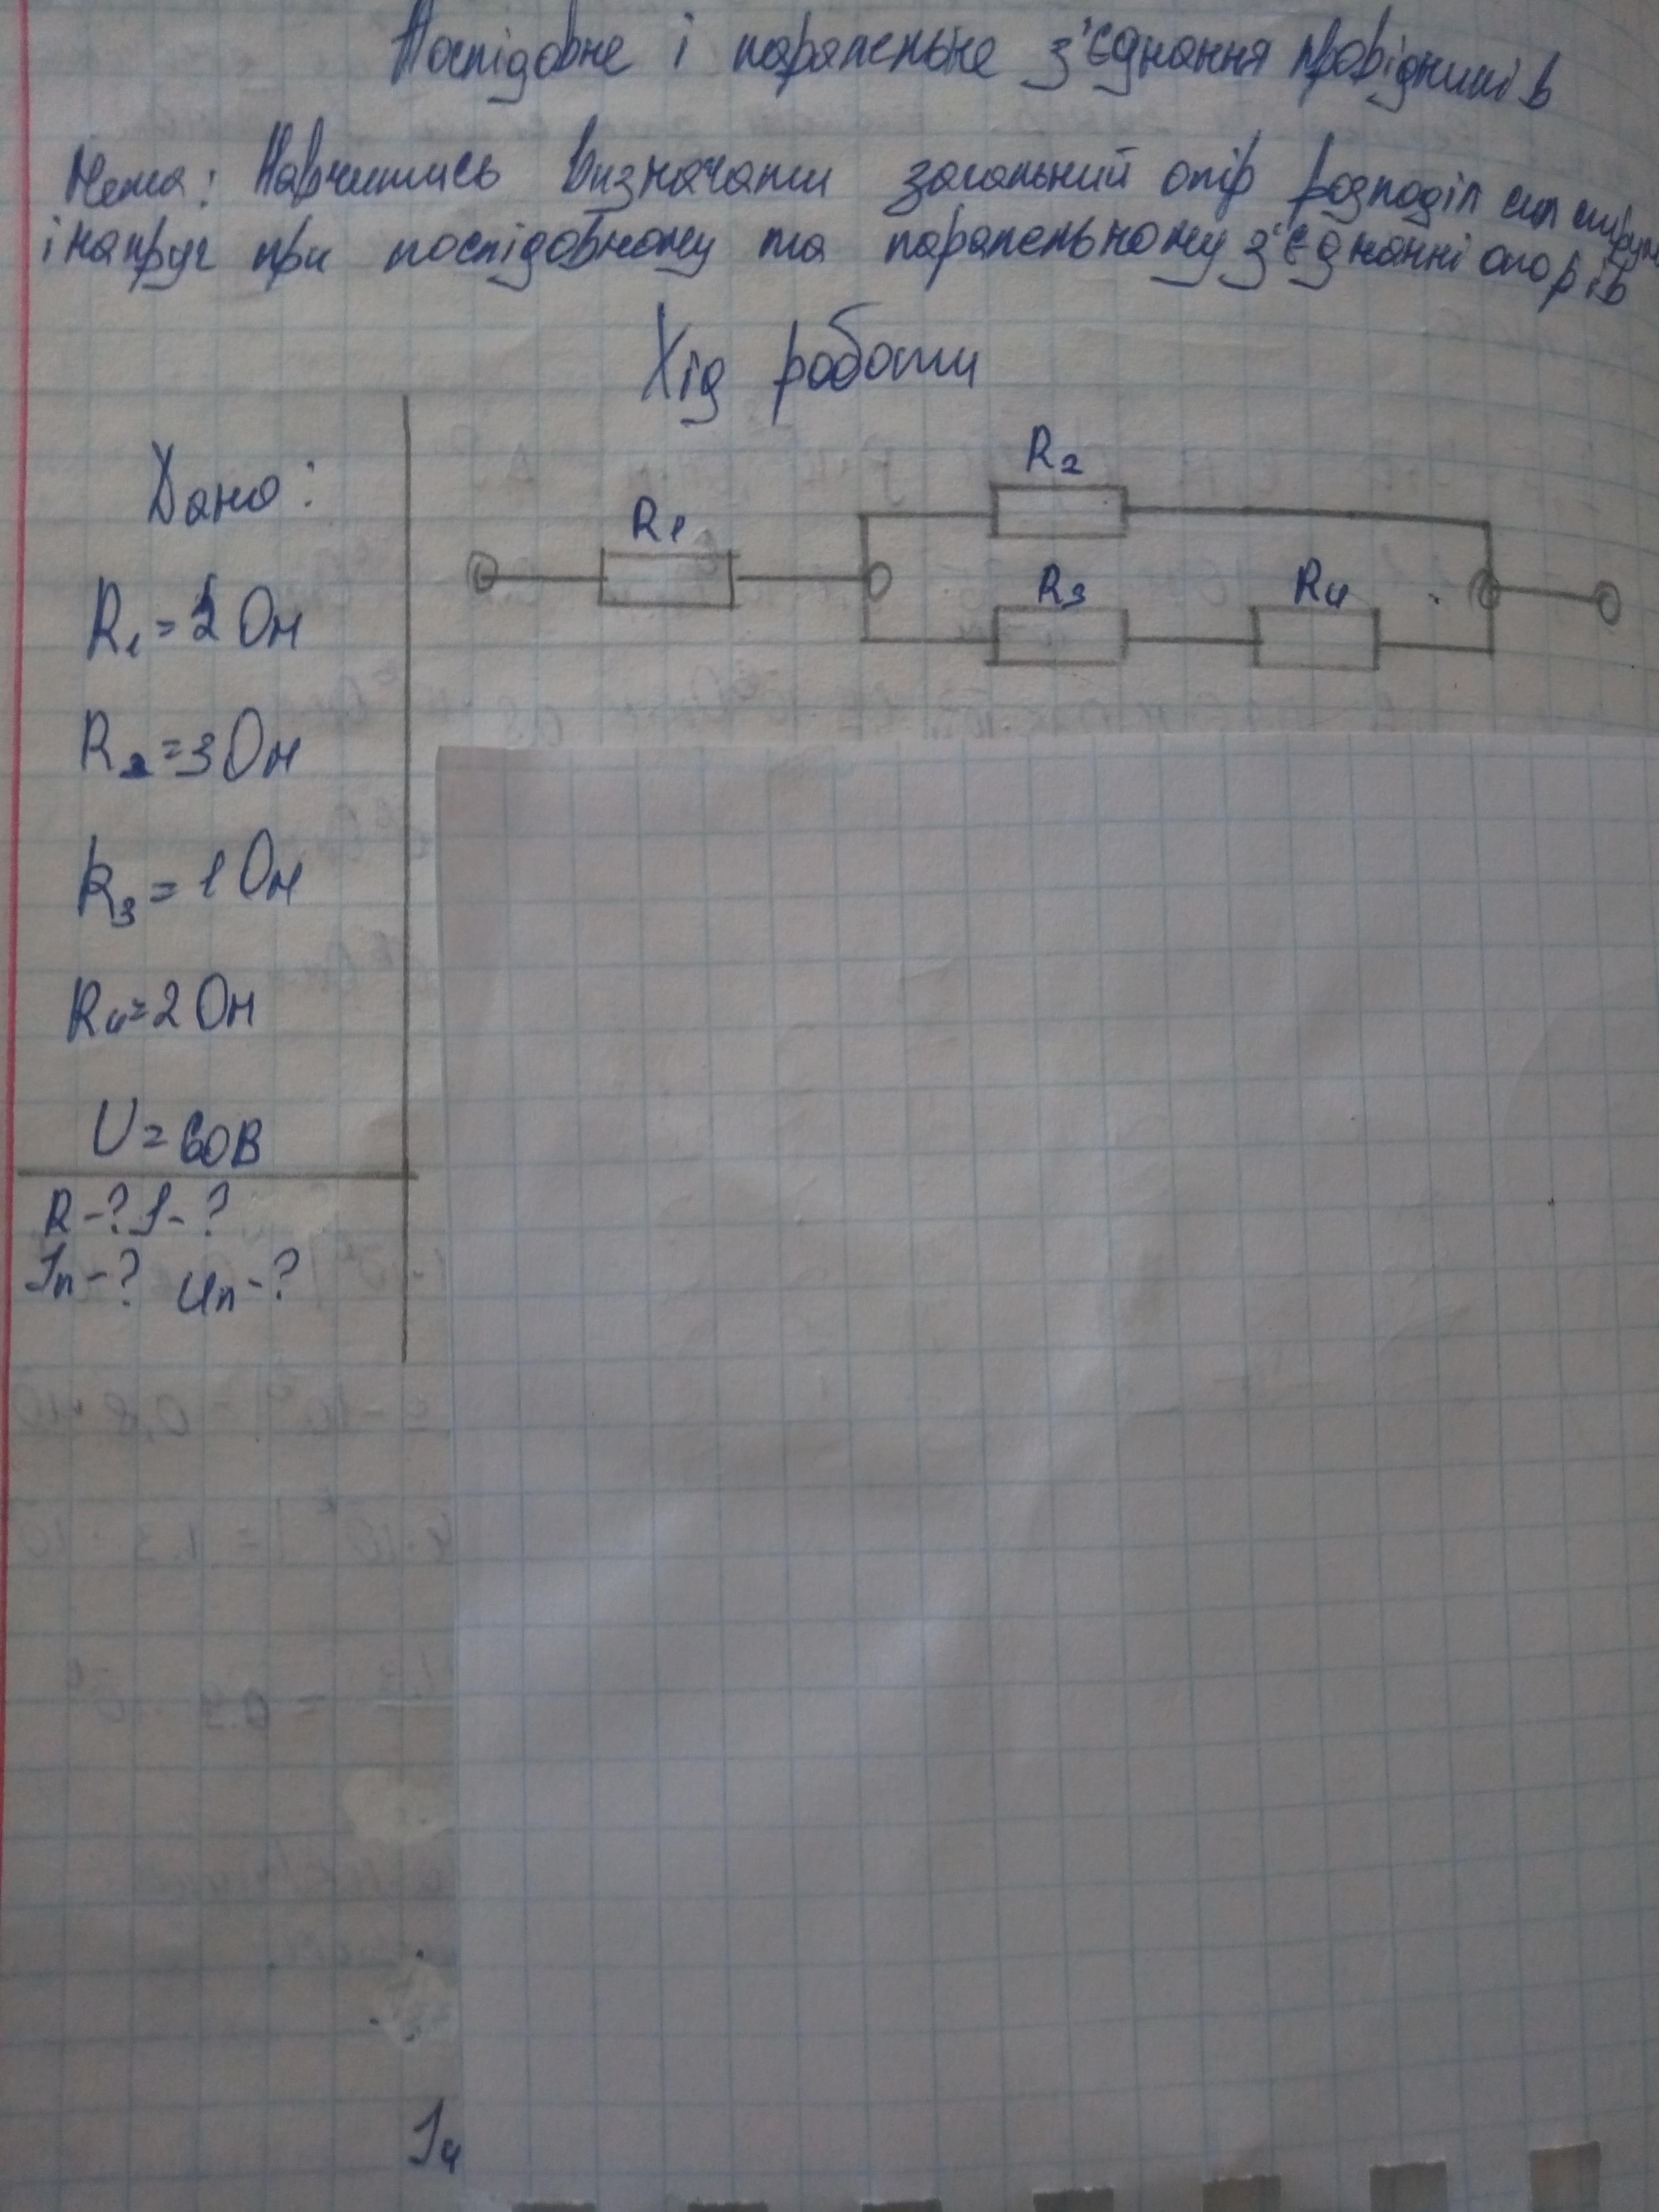 Послідовне і паралельне з'єднання провідників
Мета: Навчитись визначати загальний опір розподіл сил струму
і напруг при послідовному та паралельному з'єднанні опорів
Хід роботи
Дано:
R₂
R₁
R₃ R₄
R₁ = Ом
R₂ = 3 Ом
R₃ = 1 Ом
R₄ = 2 Ом
U = 60В
R - ? I - ?
Iп - ? Uп - ?
I₄